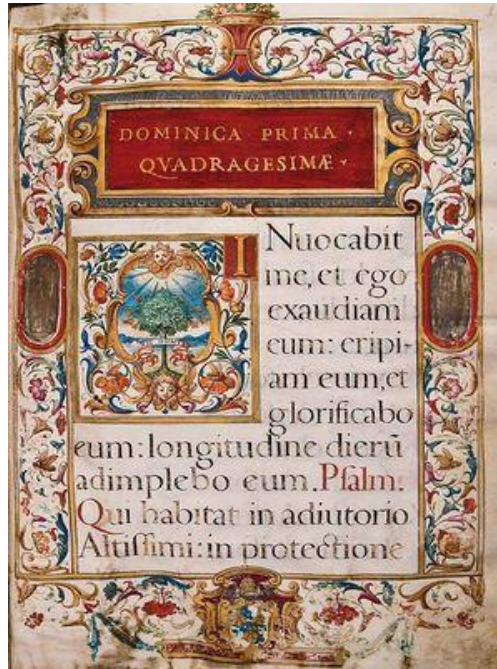 DOMINICA PRIMA ·
QVADRAGESIMÆ ·
INuocabit
me, et ego
exaudiam
eum: eripi-
am eum; et
glorificabo
eum: longitudine dierū
adimplebo eum. Psalm.
Qui habitat in adiutorio
Altiſſimi: in protectione